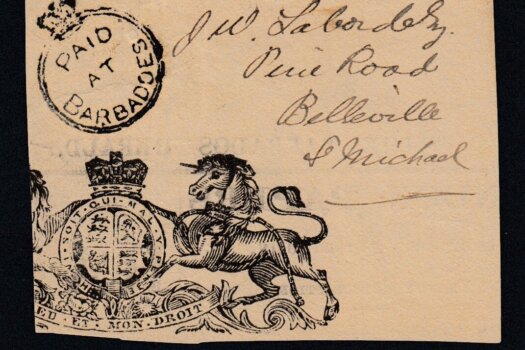 PAID
AT
BARBADOES
J W. Laborde Esq.
Pine Road
Belleville
St Michael
SOIT·QUI·MAL·Y·
ET·MON·DROIT